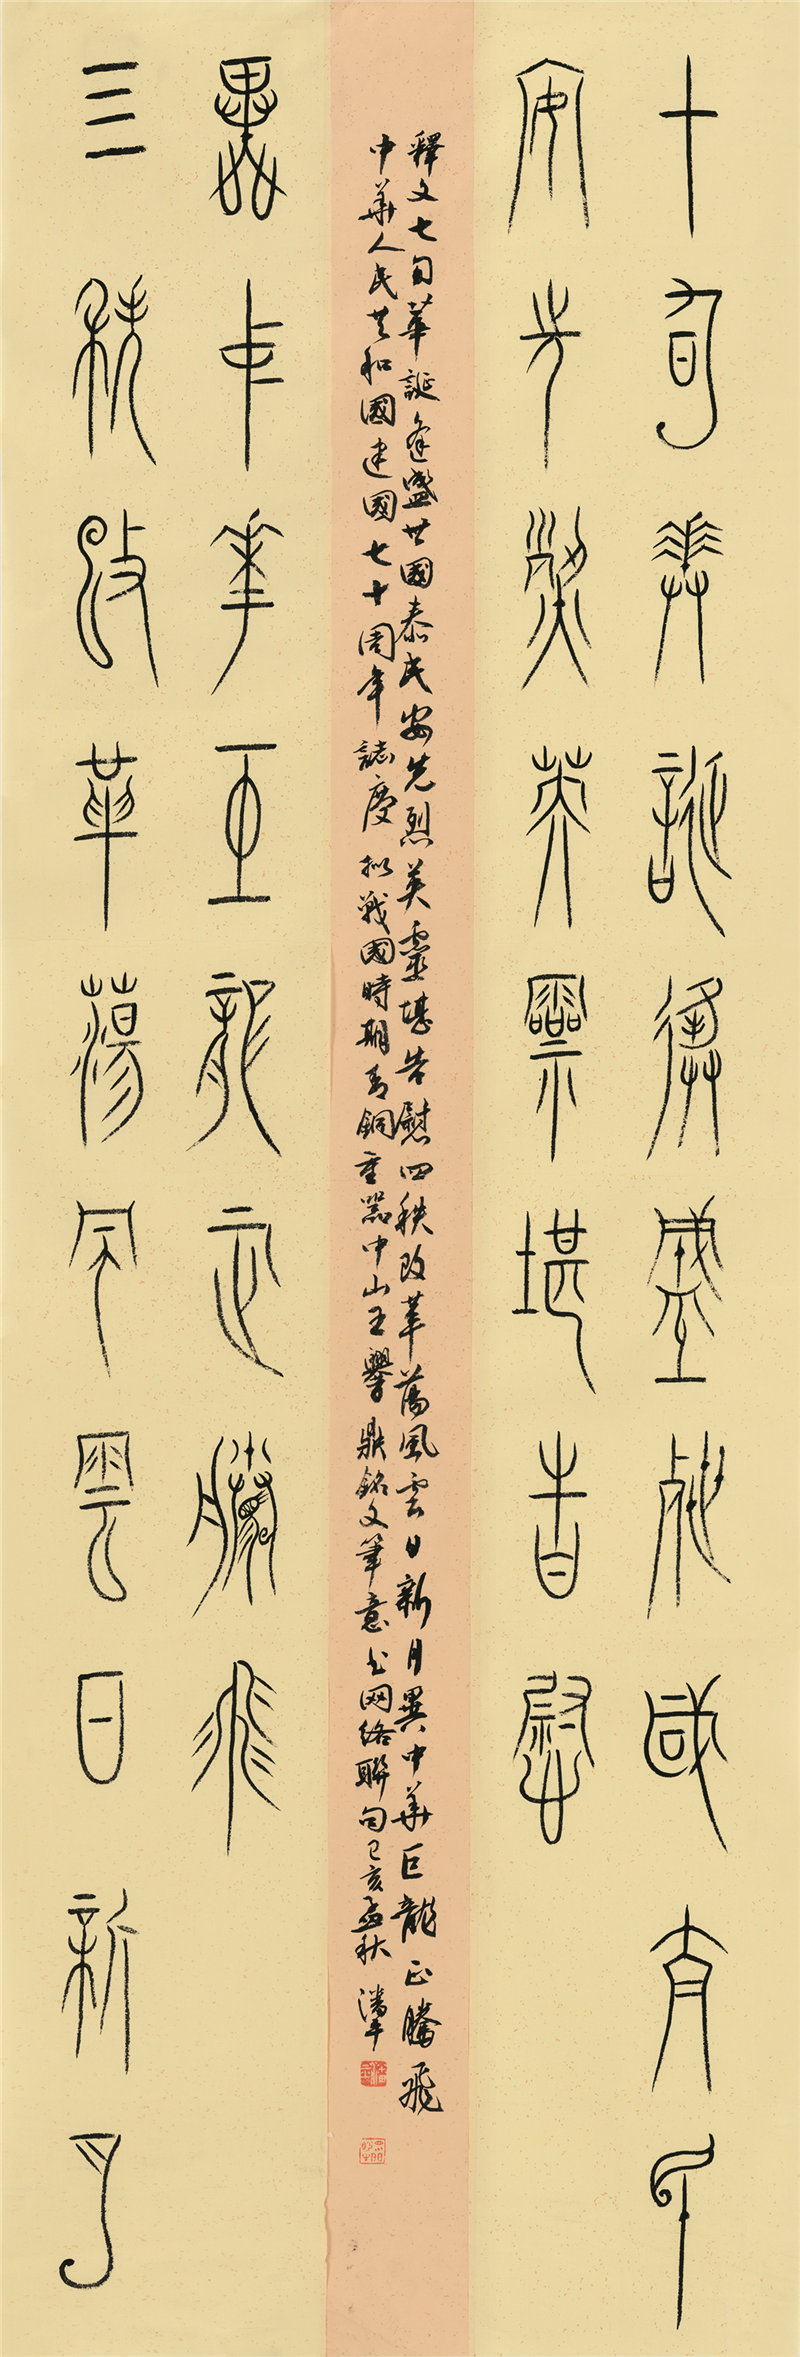 七旬華誕逢盛世國泰民
安先烈英靈堪告慰
釋文七旬華誕逢盛世國泰民安先烈英靈堪告慰四秩改革蕩風雲日新月異中華巨龍正騰飛
中華人民共和國建國七十周年誌慶拟戰國時期青銅重器中山王鼎銘文筆意书网络聯句己亥孟秋潘
四秩改革蕩風雲日新月
異中華巨龍正騰飛